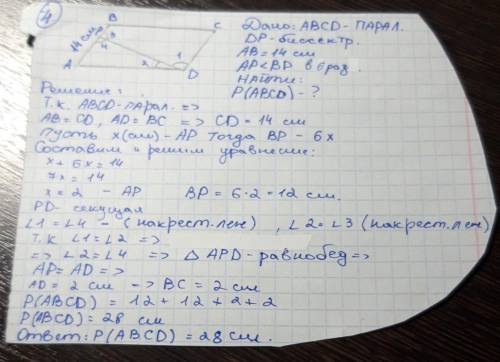 4
B
C
14 см
3
4
1
A
2
D
Дано: ABCD - парал.
DP - биссектр.
AB = 14 см
AP < BP в 6 раз.
Найти:
P(ABCD) - ?
Решение:
Т.к. ABCD - парал. =>
AB = CD, AD = BC => CD = 14 см
Пусть x(см) - AP тогда BP - 6x
Составим и решим уравнение:
x + 6x = 14
7x = 14
x = 2 - AP BP = 6·2 = 12 см.
PD - секущая
∠1 = ∠4 - (накрест. леж), ∠2 = ∠3 (накрест. леж)
т.к. ∠1 = ∠2 =>
=> ∠2 = ∠4 => △ APD - равнобед =>
AP = AD =>
AD = 2 см -> BC = 2 см
P(ABCD) = 12 + 12 + 2 + 2
P(ABCD) = 28 см
Ответ: P(ABCD) = 28 см.